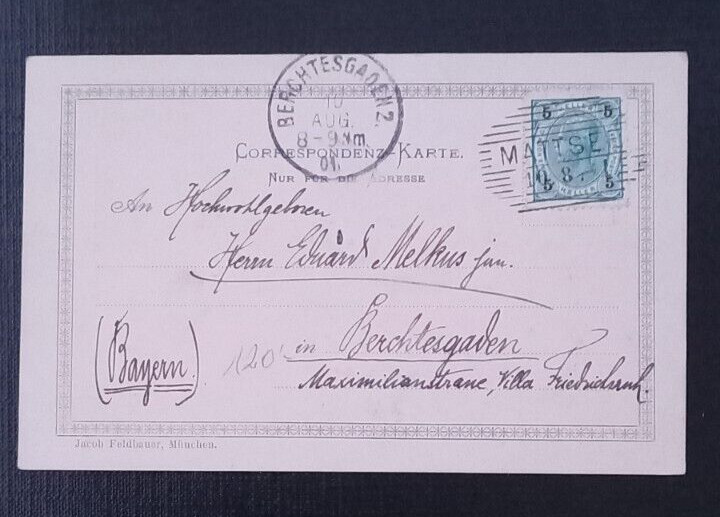 BERCHTESGADEN 2
10
AUG.
8-9 Vm.
01.
5 5
HELLER
MATTSE
10.8.
5 5
HELLER
CORRESPONDENZ-KARTE.
NUR FÜR DIE ADRESSE
An Hochwohlgeboren
Herrn Eduard Melkus jun.
(Bayern)
120
in Berchtesgaden
Maximilianstrane, Villa Friedrichsruh.
Jacob Feldbauer, München.